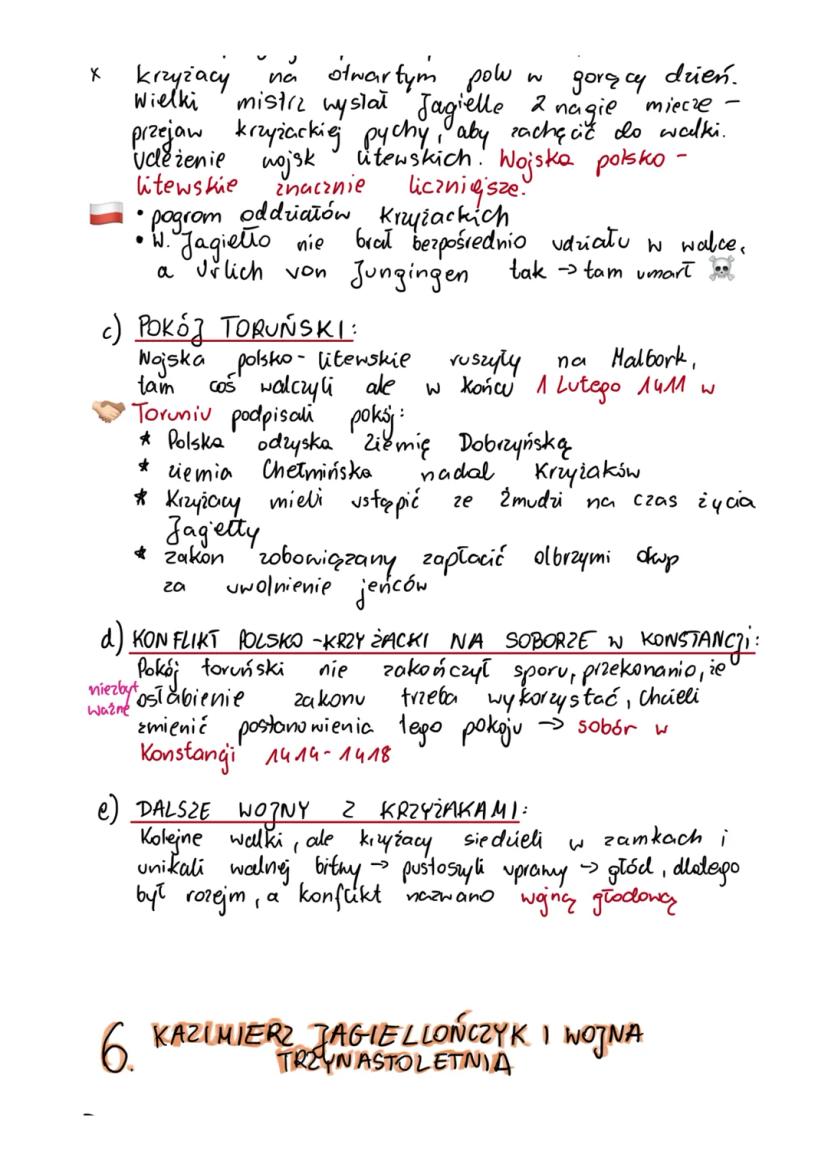 x krzyżacy na otwartym polu w gorący dzień.
Wielki mistrz wysłał Jagielle 2 nagie miecze -
przejaw krzyżackiej pychy, aby zachęcić do walki.
Udeżenie wojsk litewskich. Wojska polsko -
litewskie znacznie liczniejsze.
• pogrom oddziałów Krzyżackich
• W. Jagiełło nie brał bezpośrednio udziału w walce,
a Urlich von Jungingen tak → tam umarł ☠
c) POKÓJ TORUŃSKI:
Wojska polsko-litewskie ruszyły na Malbork,
tam coś walczyli ale w końcu 1 Lutego 1411 w
Toruniu podpisali pokój:
* Polska odzyska Ziemię Dobrzyńską
* ziemia Chełmińska nadal Krzyżaków
* Krzyżacy mieli ustąpić ze Żmudzi na czas życia
Jagiełły
* zakon zobowiązany zapłacić olbrzymi okup
za uwolnienie jeńców
d) KONFLIKT POLSKO-KRZYŻACKI NA SOBORZE W KONSTANCJI:
Pokój toruński nie zakończył sporu, przekonanie, że
niezbyt osłabienie zakonu trzeba wykorzystać, Chcieli
ważne zmienić postanowienia tego pokoju → sobór w
Konstancji 1414-1418
e) DALSZE WOJNY Z KRZYŻAKAMI:
Kolejne walki, ale krzyżacy siedzieli w zamkach i
unikali walnej bitwy → pustoszyli uprawy → głód, dlatego
był rozejm, a konflikt nazwano wojną głodową
6. KAZIMIERZ JAGIELLOŃCZYK I WOJNA
TRZYNASTOLETNIA